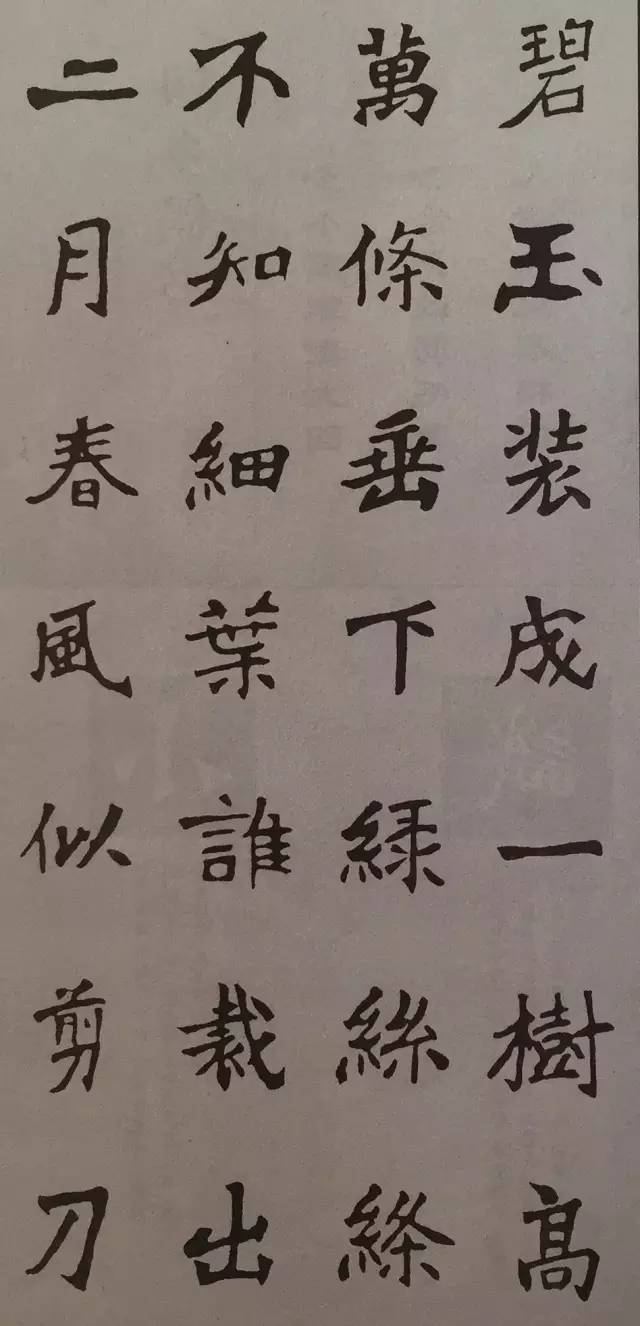 碧玉装成一樹高
萬條垂下緑絲絛
不知細葉誰裁出
二月春風似剪刀